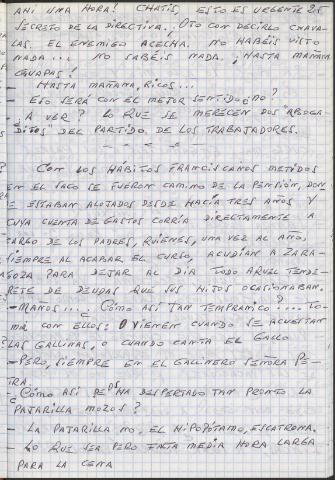 AHI UNA HORA! CHATIS, ESTO ES URGENTE Y
SECRETO DE LA DIRECTIVA. ¡OJO CON DECIRLO CHAVA-
LAS. EL ENEMIGO ACECHA. NO HABÉIS VISTO
NADA... NO SABÉIS NADA. ¡HASTA MAÑANA
GUAPAS!
- HASTA MAÑANA, RICOS...
- ESO SERÁ CON EL MEJOR SENTIDO ¿NO?
- A VER? LO QUE SE MERECEN DOS "ABOGA-
DITOS" DEL PARTIDO DE LOS TRABAJADORES.
CON LOS HÁBITOS FRANCISCANOS METIDOS
EN EL SACO SE FUERON CAMINO DE LA PENSIÓN, DON-
DE ESTABAN ALOJADOS DESDE HACÍA TRES AÑOS Y
CUYA CUENTA DE GASTOS CORRÍA DIRECTAMENTE A
CARGO DE LOS PADRES, QUIENES, UNA VEZ AL AÑO,
SIEMPRE AL ACABAR EL CURSO, ACUDÍAN A ZARA-
GOZA PARA DEJAR AL DIA TODO AQUEL TENDE-
RETE DE DEUDAS QUE SUS HIJOS OCASIONABAN.
- MAÑOS... ¿CÓMO ASÍ TAN TEMPRANICO?... TO-
MA CON ELLOS: O VIENEN CUANDO SE ACUESTAN
LAS GALLINAS, O CUANDO CANTA EL GALLO
- PERO, SIEMPRE EN EL GALLINERO SEÑORA PE-
TRA.
¿CÓMO ASÍ OS HA DESPERTADO TAN PRONTO LA
PAJARILLA MOZOS?
- LA PAJARILLA NO, EL HIPOPÓTAMO, ESCATRONA.
- LO QUE SEA PERO FALTA MEDIA HORA LARGA
PARA LA CENA